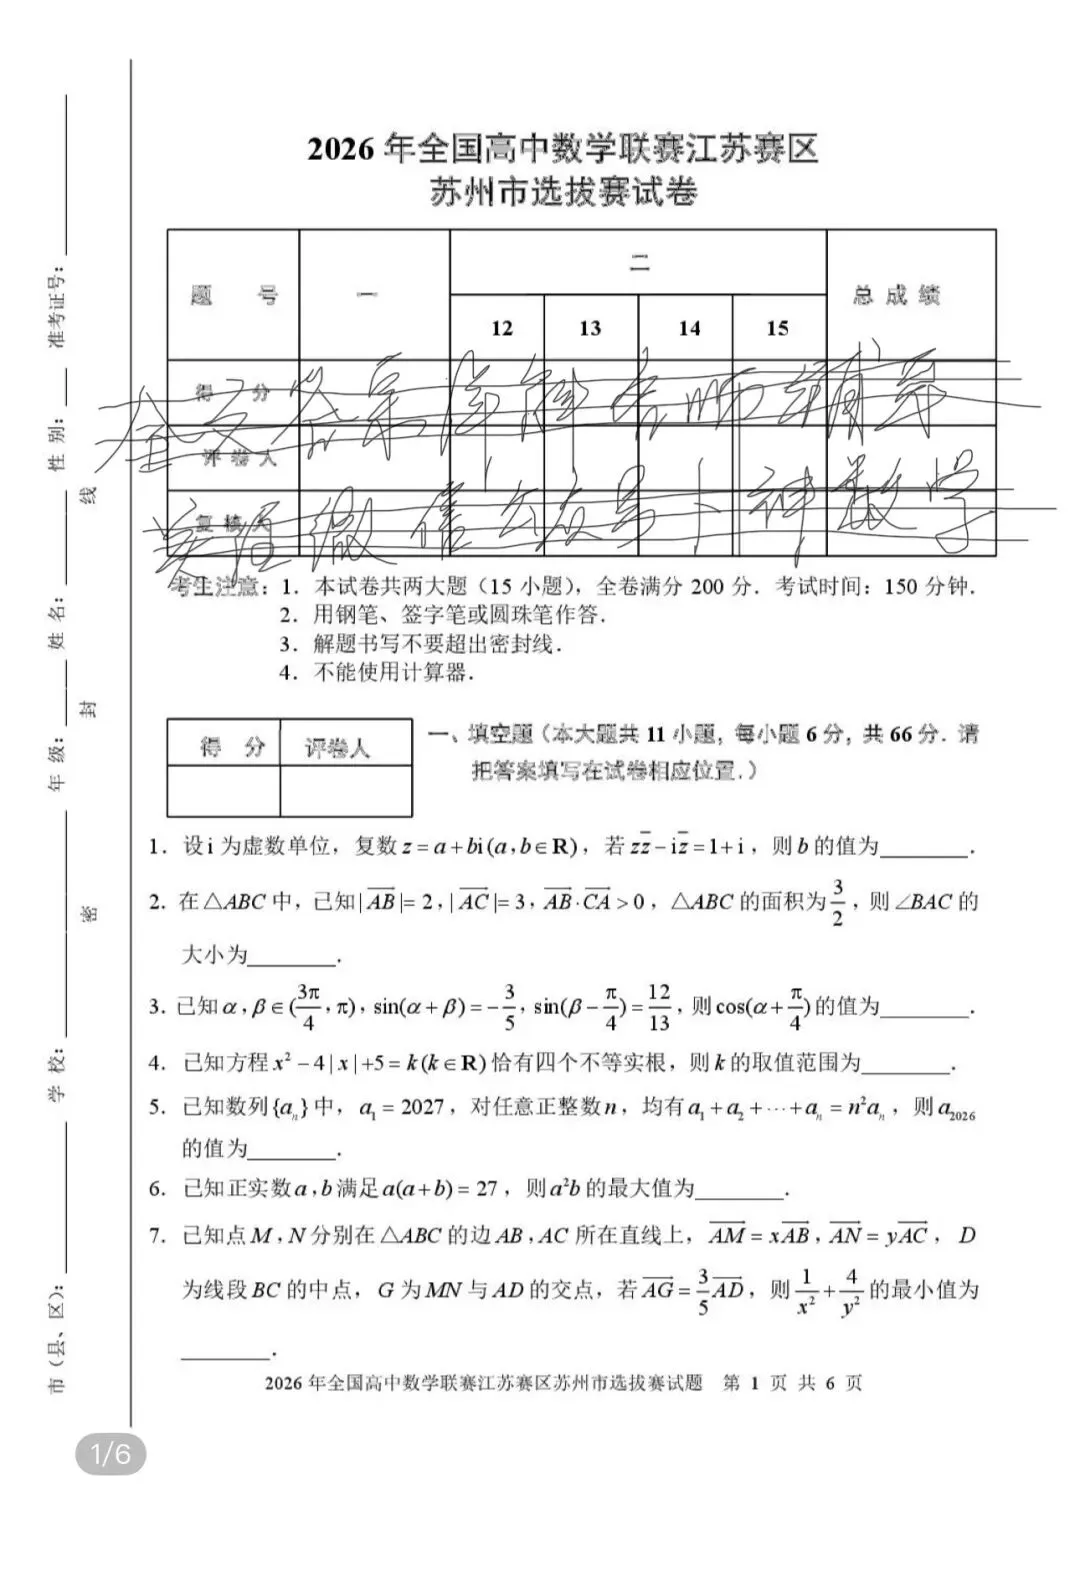 2026 年全国高中数学联赛江苏赛区
苏州市选拔赛试卷
题 号 一 二 总成绩
12 13 14 15
得 分
评卷人
复核人
考生注意：1．本试卷共两大题（15 小题），全卷满分 200 分．考试时间：150 分钟．
2．用钢笔、签字笔或圆珠笔作答．
3．解题书写不要超出密封线．
4．不能使用计算器．
得 分 评卷人
一、填空题（本大题共 11 小题，每小题 6 分，共 66 分．请
把答案填写在试卷相应位置．）
1．设 i 为虚数单位，复数 z = a + bi (a , b ∈ R)，若 zz̅ − iz̅ = 1 + i，则 b 的值为________．
2．在 △ABC 中，已知 |AB| = 2, |AC| = 3, AB · CA > 0，△ABC 的面积为 3/2，则 ∠BAC 的
大小为________．
3．已知 α , β ∈ (3π/4, π)，sin(α + β) = −3/5，sin(β − π/4) = 12/13，则 cos(α + π/4) 的值为________．
4．已知方程 x² − 4 | x | +5 = k (k ∈ R) 恰有四个不等实根，则 k 的取值范围为________．
5．已知数列 {aₙ} 中，a₁ = 2027，对任意正整数 n，均有 a₁ + a₂ + ⋯ + aₙ = n²aₙ，则 a₂₀₂₆
的值为________．
6．已知正实数 a , b 满足 a(a + b) = 27，则 a²b 的最大值为________．
7．已知点 M , N 分别在 △ABC 的边 AB , AC 所在直线上，AM = xAB, AN = yAC，D
为线段 BC 的中点，G 为 MN 与 AD 的交点，若 AG = 3/5 AD，则 1/x² + 4/y² 的最小值为
________．
2026 年全国高中数学联赛江苏赛区苏州市选拔赛试题 第 1 页 共 6 页
市（县、区）： 学 校： 年 级： 姓 名： 性 别： 准考证号：
密 封 线
1/6